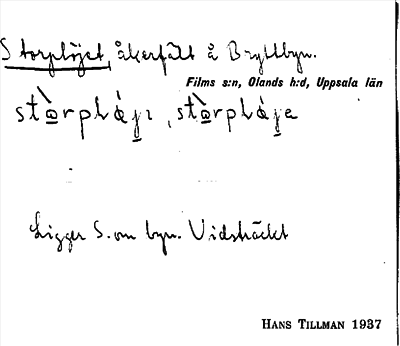 Storplöjet, åkerfält å Bryttbyn.
Films s:n, Olands h:d, Uppsala län
stò̱rplá̱jı, stò̱rplá̱ja
Ligger S. om byn. Vidsträckt
HANS TILLMAN 1937